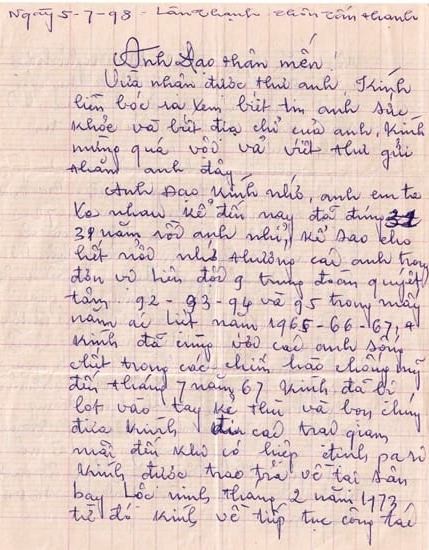 Ngày 5-7-98 - Lâm Thạnh thôn tấn thanh
Anh Đạo thân mến!
Vừa nhận được thư anh, Kính
liền bóc ra xem biết tin anh sức
khỏe và biết địa chỉ của anh, Kính
mừng quá vội vả viết thư gửi
thăm anh đây.
Anh Đạo kính nhớ, anh em ta
xa nhau kể đến nay đã đúng 31
31 năm rồi anh nhỉ, kể sao cho
hết nỗi nhớ thương các anh trong
đơn vị liên đội 9 trung đoàn quyết
tâm .. 92 - 93 - 94 và 95 trong mấy
năm ác liệt năm 1965 - 66 - 67,
Kính đã cùng với các anh sống
chết trong các chiến hào chống mỹ
đến tháng 7 năm 67 Kính đã bị
lọt vào tay kẻ thù và bọn chúng
đưa Kính các trại giam
mãi đến khi có hiệp định pa ri
Kính được trao trả về tại sân
bay Lộc ninh tháng 2 năm 1973
từ đó Kính về tiếp tục công tác